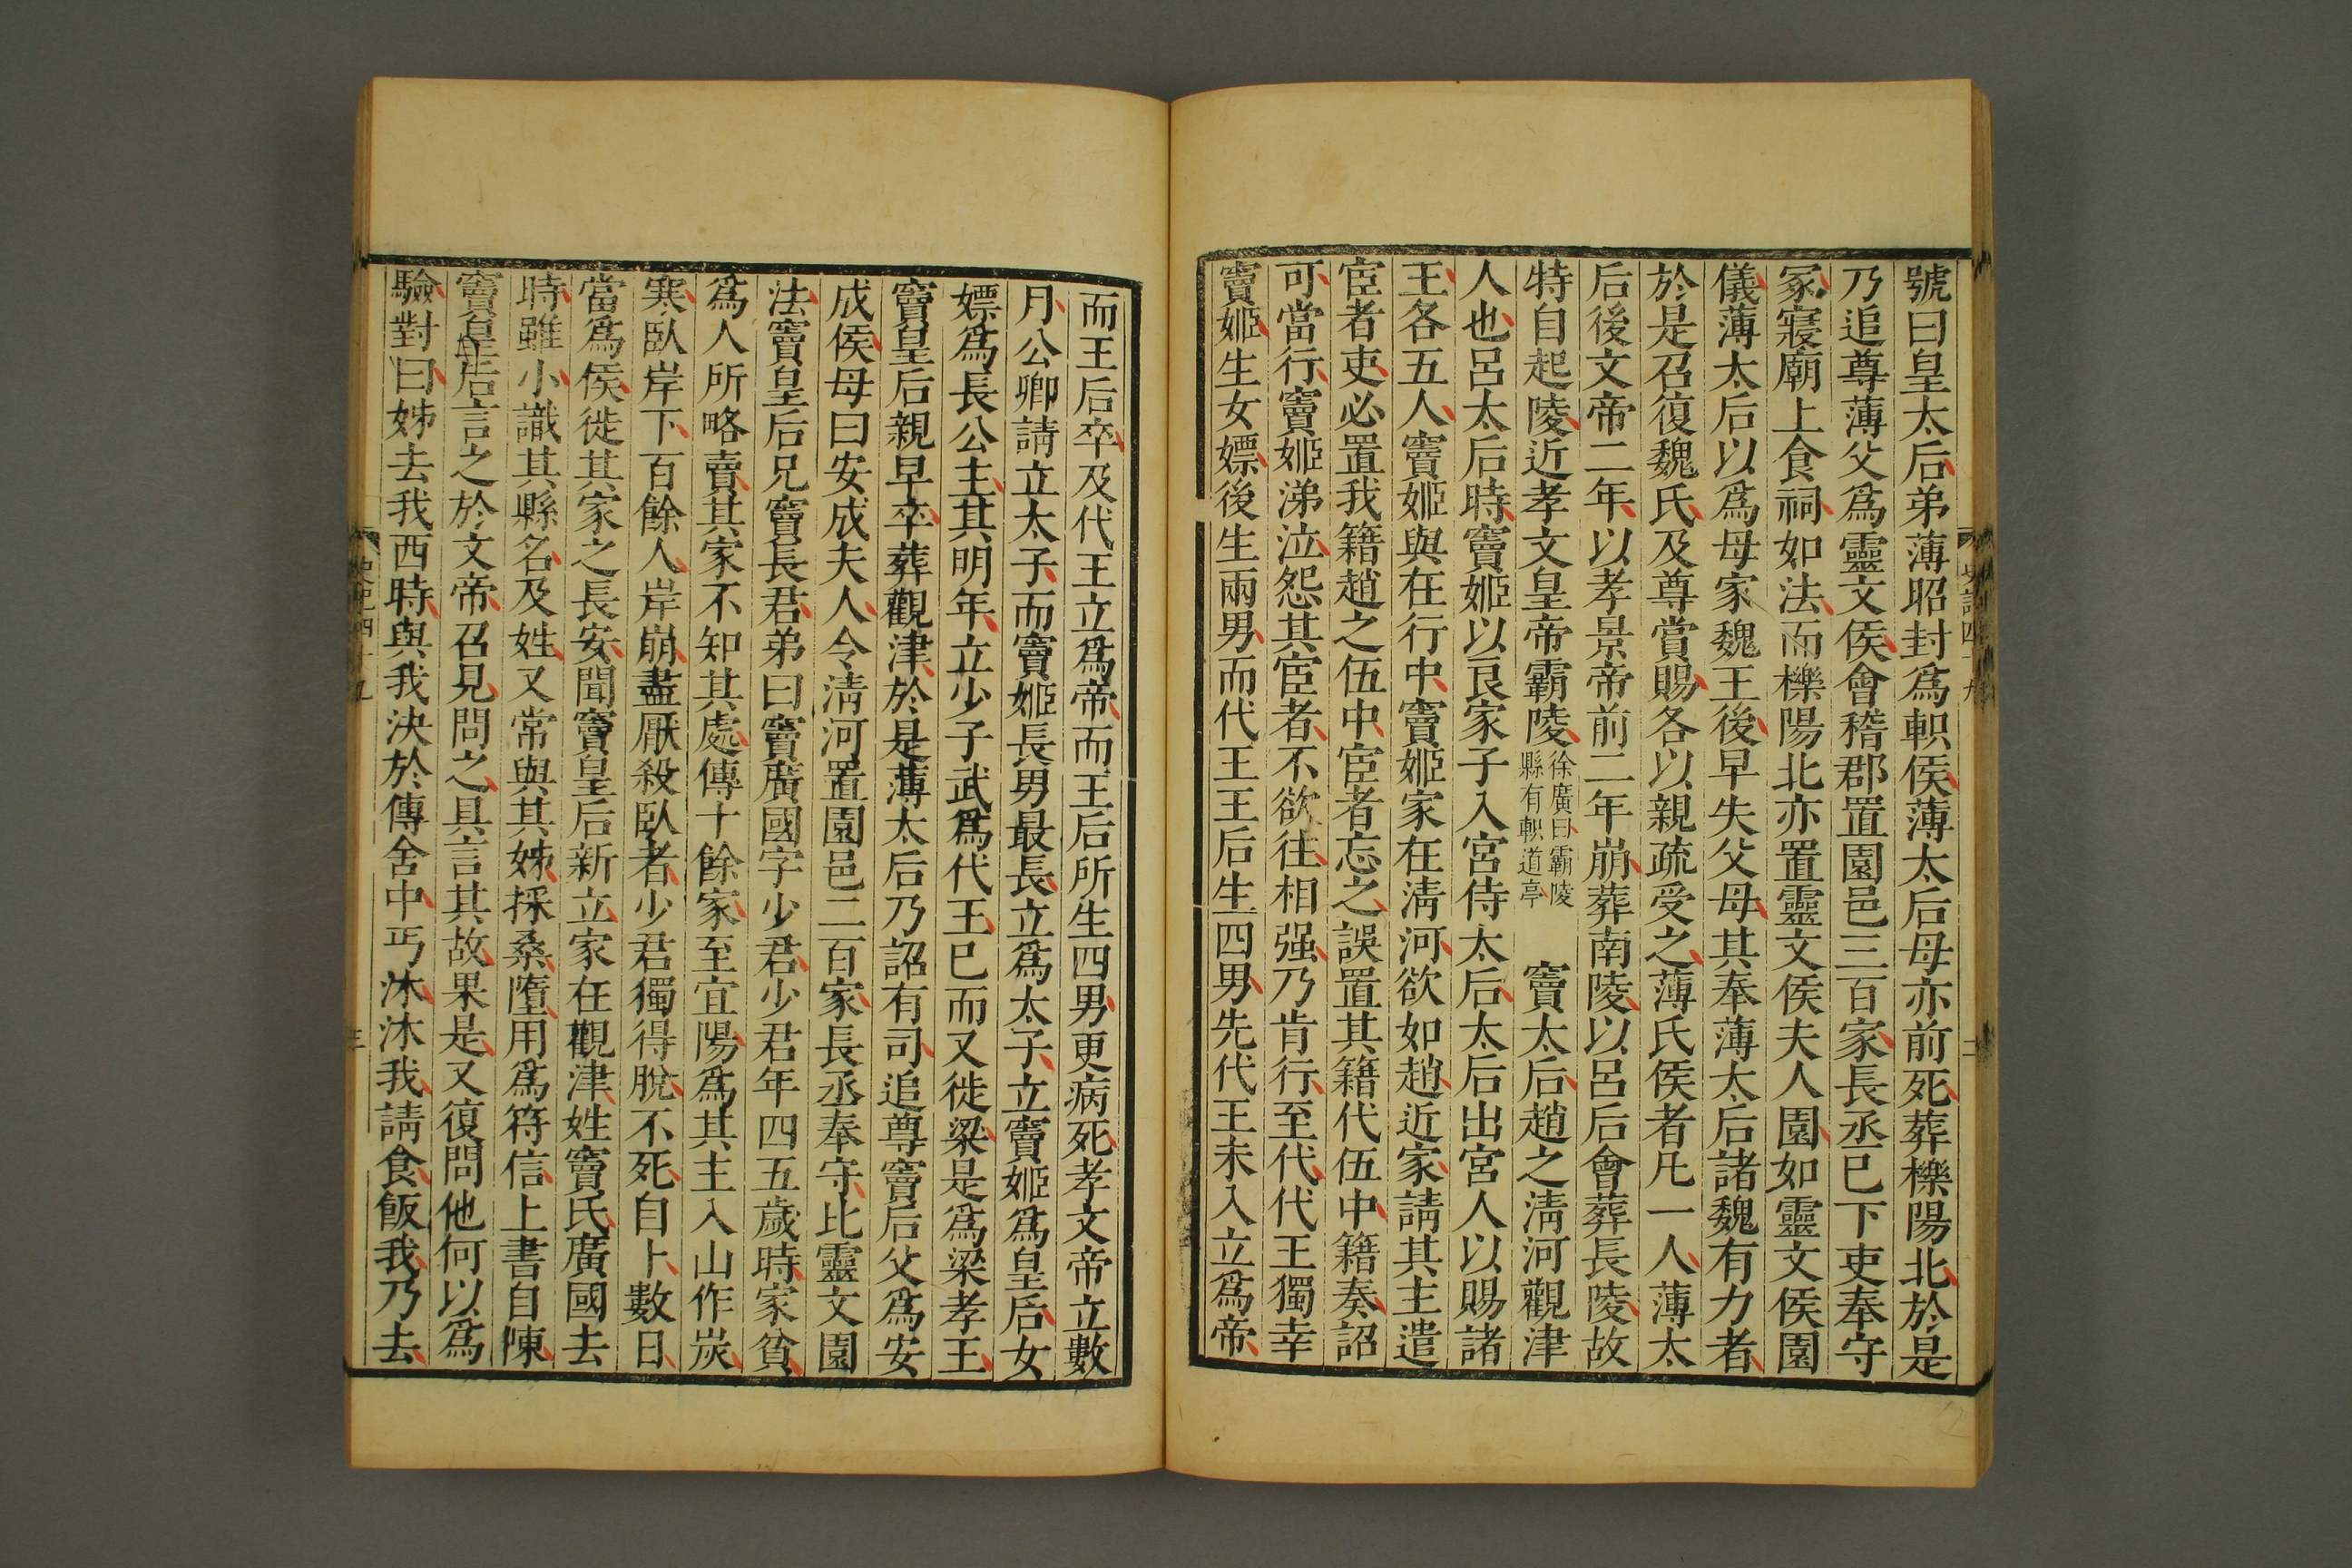 號曰皇太后弟薄昭封爲軹侯薄太后母亦前死葬櫟陽北於是
乃追尊薄父爲靈文侯會稽郡置園邑三百家長丞巳下吏奉守
冢寢廟上食祠如法而櫟陽北亦置靈文侯夫人園如靈文侯園
儀薄太后以爲母家魏王後早失父母其奉薄太后諸魏有力者
於是召復魏氏及尊賞賜各以親疏受之薄氏侯者凡一人薄太
后後文帝二年以孝景帝前二年崩葬南陵以呂后會葬長陵故
特自起陵近孝文皇帝霸陵徐廣曰霸陵縣有軹道亭 竇太后趙之淸河觀津
人也呂太后時竇姬以良家子入宮侍太后太后出宮人以賜諸
王各五人竇姬與在行中竇姬家在淸河欲如趙近家請其主遣
宦者吏必置我籍趙之伍中宦者忘之誤置其籍代伍中籍奏詔
可當行竇姬涕泣怨其宦者不欲往相强乃肯行至代代王獨幸
竇姬生女嫖後生兩男而代王王后生四男先代王未入立爲帝
而王后卒及代王立爲帝而王后所生四男更病死孝文帝立數
月公卿請立太子而竇姬長男最長立爲太子立竇姬爲皇后女
嫖爲長公主其明年立少子武爲代王巳而又徙梁是爲梁孝王
竇皇后親早卒葬觀津於是薄太后乃詔有司追尊竇后父爲安
成侯母曰安成夫人令淸河置園邑二百家長丞奉守比靈文園
法竇皇后兄竇長君弟曰竇廣國字少君少君年四五歲時家貧
爲人所略賣其家不知其處傳十餘家至宜陽爲其主入山作炭
寒臥岸下百餘人岸崩盡厭殺臥者少君獨得脫不死自卜數日
當爲侯徙其家之長安聞竇皇后新立家在觀津姓竇氏廣國去
時雖小識其縣名及姓又常與其姊採桑墮用爲符信上書自陳
竇皇后言之於文帝召見問之具言其故果是又復問他何以爲
驗對曰姊去我西時與我決於傳舍中丐沐沐我請食飯我乃去